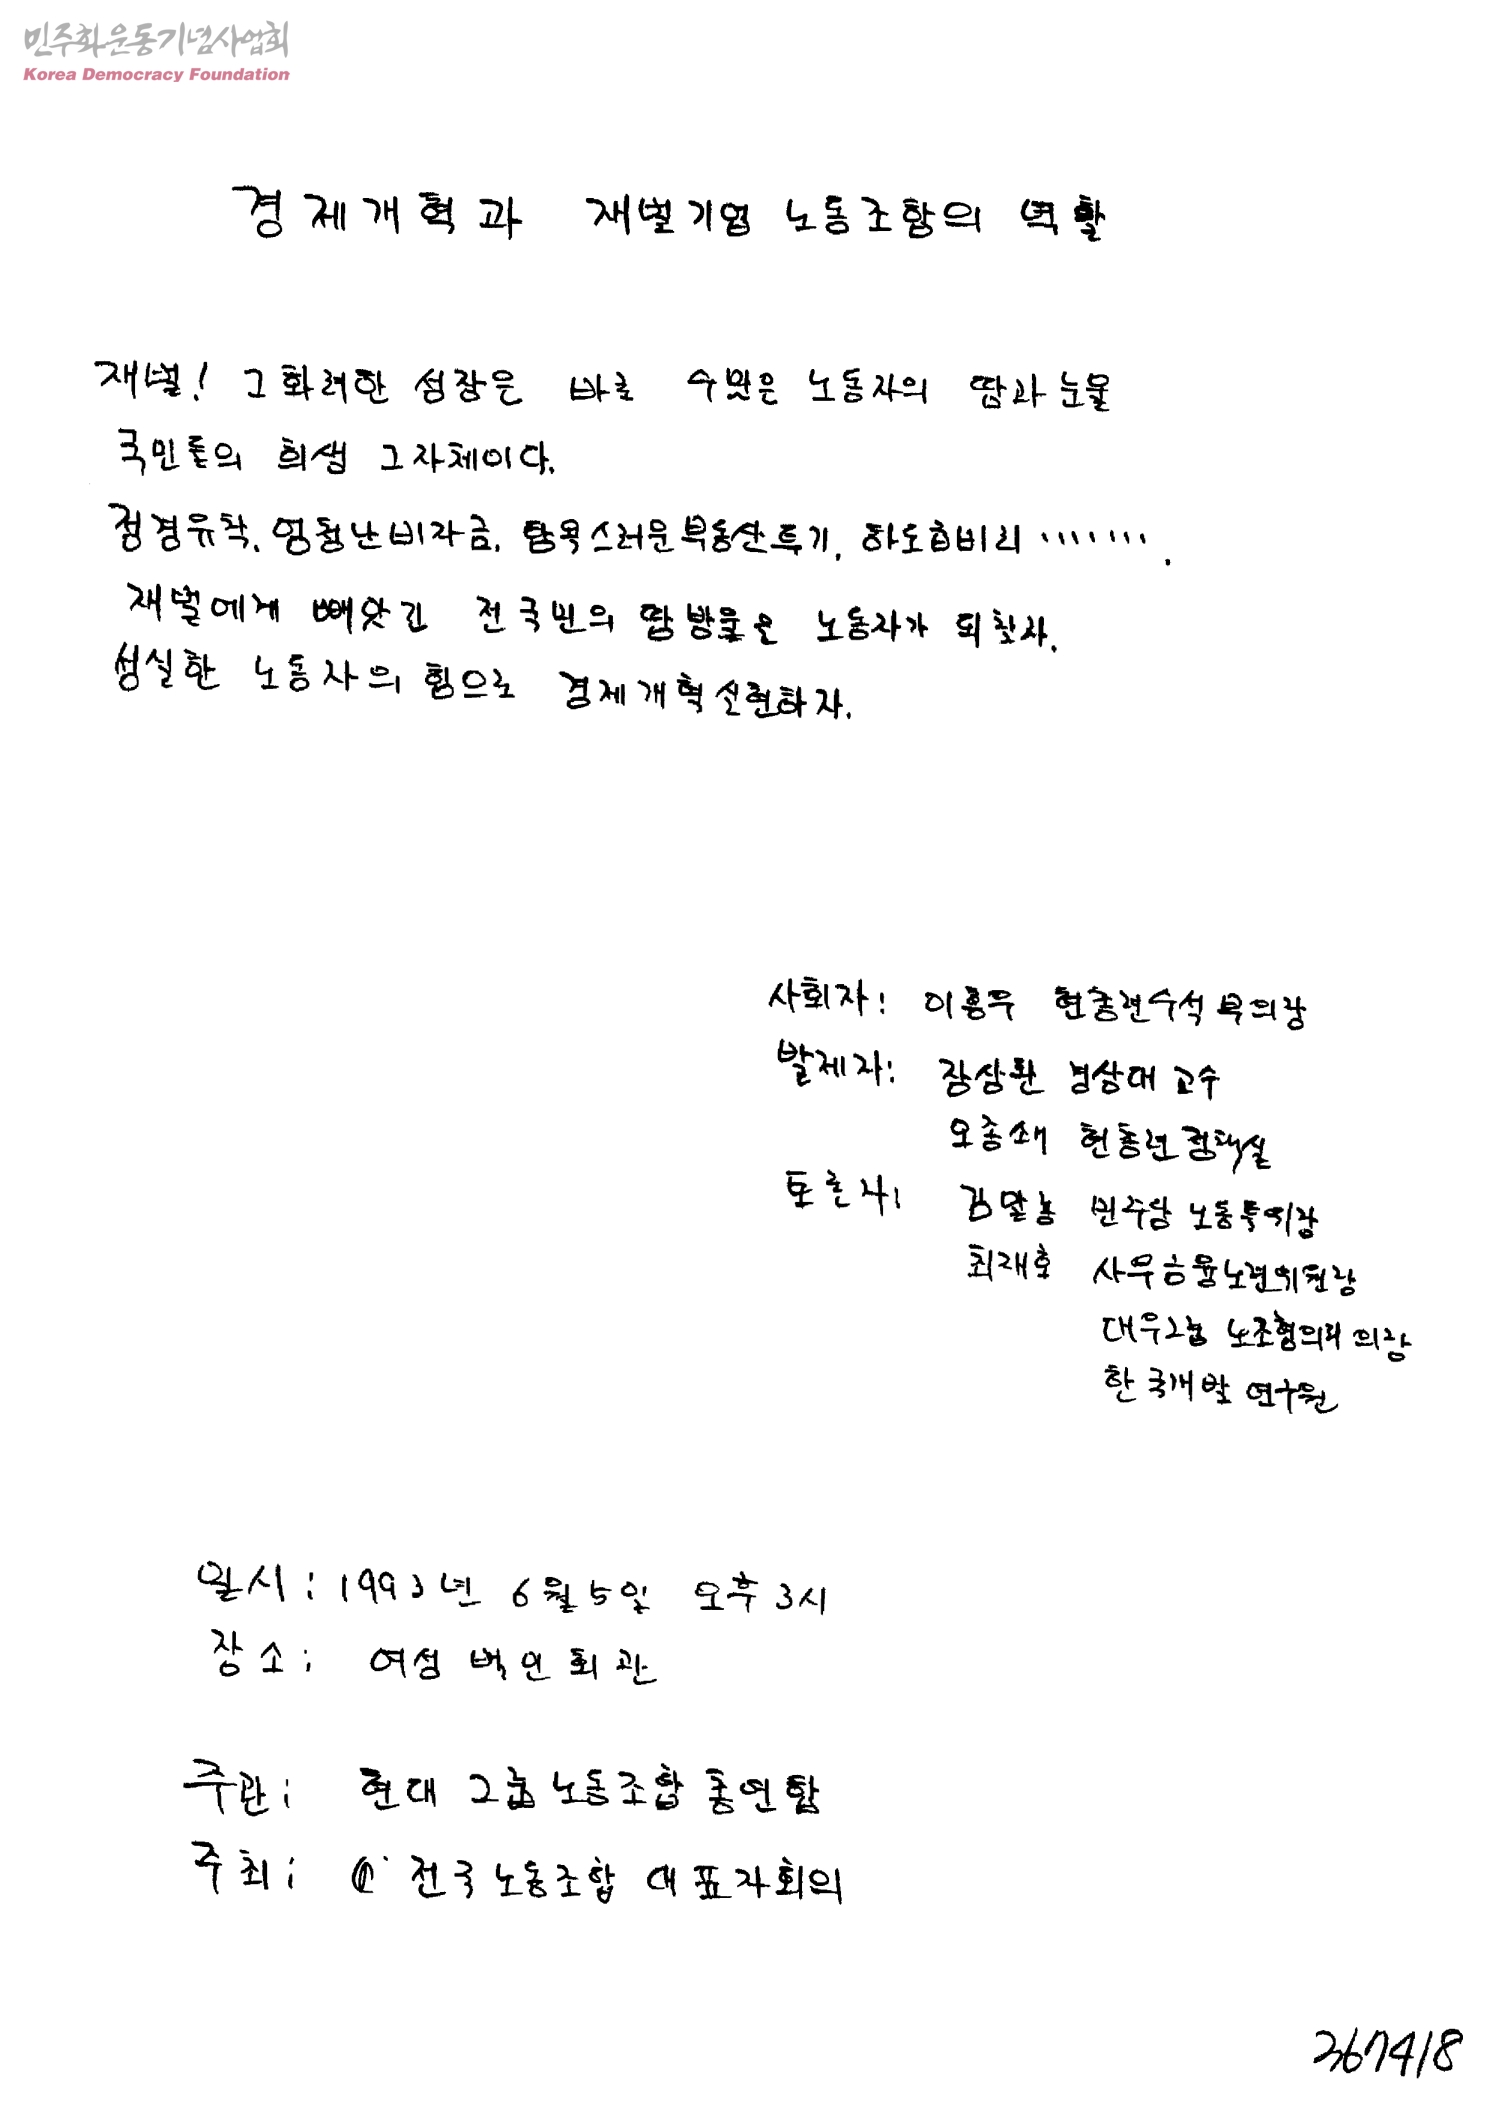 민주화운동기념사업회
Korea Democracy Foundation
경제개혁과 재벌기업 노동조합의 역활
재벌! 그 화려한 성장은 바로 수많은 노동자의 땀과 눈물
국민들의 희생 그 자체이다.
정경유착. 엄청난 비자금. 탐욕스러운 부동산투기, 하도급비리 ........
재벌에게 빼앗긴 전국민의 땀방울은 노동자가 되찾자.
성실한 노동자의 힘으로 경제개혁실현하자.
사회자: 이홍우 현총련수석 부의장
발제자: 장상환 경상대 교수
오종쇄 현총련정책실
토론자: 김말룡 민주당 노동특위장
최재호 사무금융노련위원장
대우그룹 노조협의회 의장
한국개발 연구원
일시: 1993년 6월 5일 오후 3시
장소: 여성 백인회관
주관: 현대 그룹노동조합 총연합
주최: 전국노동조합 대표자회의
367418